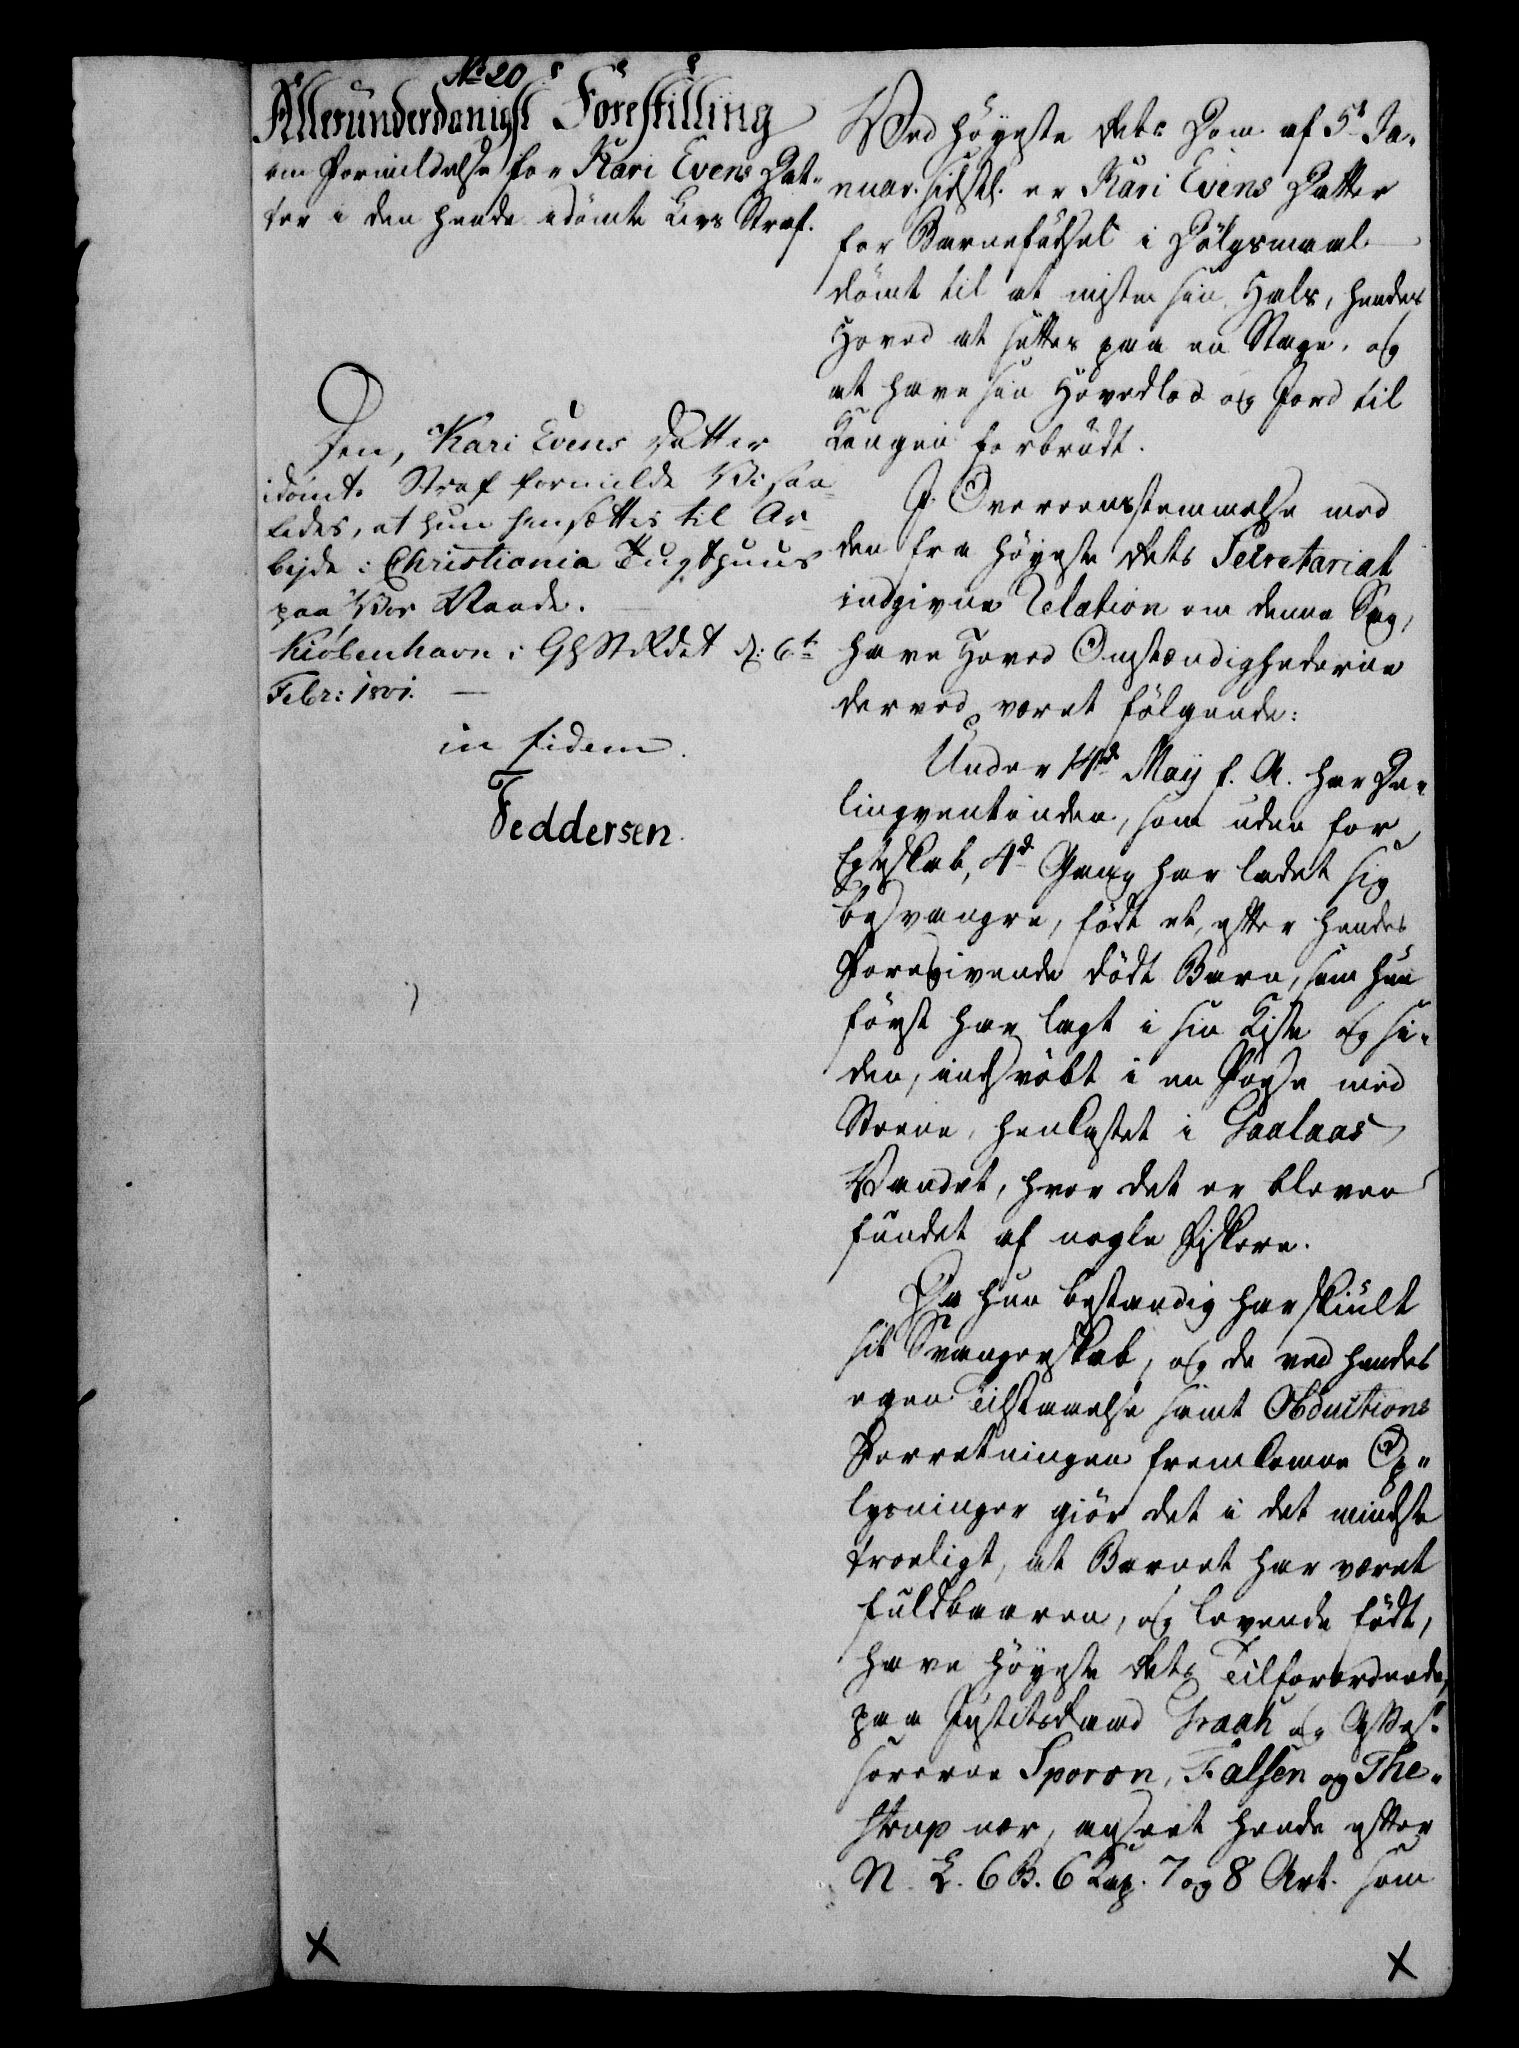 No 20
Allerunderdanigst Forestilling
om Formildelse for Kari Evens Dat-
ter i den hende idömte Livs Straf.
Den, Kari Evens Datter
idömte Straf formilde Vi saa-
ledes, at hun hensættes til Ar-
beyde i Christiania Tugthuus
paa Vor Naade.
Kiöbenhavn i GhStRdet d: 6te
Febr: 1801.
in fidem.
Feddersen.
Ved Höyeste Rets Dom af 5t Ja-
nuar. sidstl. er Kari Evens Datter
for Barnefødsel i Dölgsmaal
dömt til at miste sin Hals, hendes
Hoved at settes paa en Stage, og
at have sin Hovedlod og Jord til
Kongen forbrudt.
I Overeensstemmelse med
den fra Höyeste Rets Secretariat
indgivne Relation om denne Sag,
have Hoved Omstændighederne
derved været fölgende:
Under 14d Maij f. A. har De-
linqventinden, som uden for
Egteskab, 4d Gang har ladet sig
besvangre, födt et, efter hendes
Foregivende dödt Barn, som hun
först har lagt i sin Kiste og si-
den, indsvöbt i en Pose med
Steene, henkastet i Gaalaas
Vandet, hvor det er bleven
fundet af nogle Fiskere.
Da hun bestandig har skiult
sit Svangerskab, og de ved hendes
egen Tilstaaelse samt Obductions
Forretningen fremkomne Op-
lysninger giör det i det mindste
troeligt, at Barnet har været
fuldbaaren, og levende födt,
have Höyeste Rets Tilforordnede,
paa Justitsraad Graah og Asses-
sorerne Sporon, Falsen og The-
strup nær, anseet hende efter
N. L. 6 B. 6 Kap. 7 og 8 Art. som